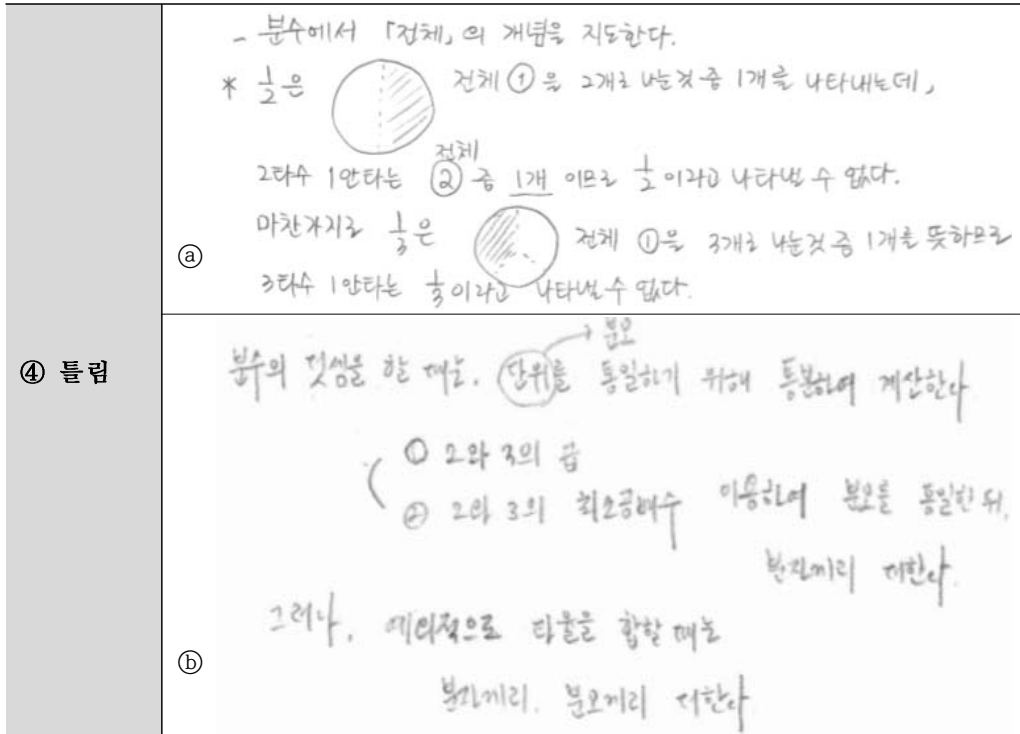 ④ 틀림
- 분수에서 「전체」의 개념을 지도한다.
* 1/2은 전체 ①을 2개로 나눈것 중 1개를 나타내는데,
전체
2타수 1안타는 ② 중 1개 이므로 1/2이라고 나타낼 수 없다.
마찬가지로 1/3은 전체 ①을 3개로 나눈것 중 1개를 뜻하므로
ⓐ
3타수 1안타는 1/3이라고 나타낼 수 없다.
→ 분모
분수의 덧셈을 할 때는, 단위를 통일하기 위해 통분하여 계산한다
① 2와 3의 곱
② 2와 3의 최소공배수 이용하여 분모를 통일한 뒤,
분자끼리 더한다.
그러나, 예외적으로 타율을 합할 때는
ⓑ
분자끼리. 분모끼리 더한다